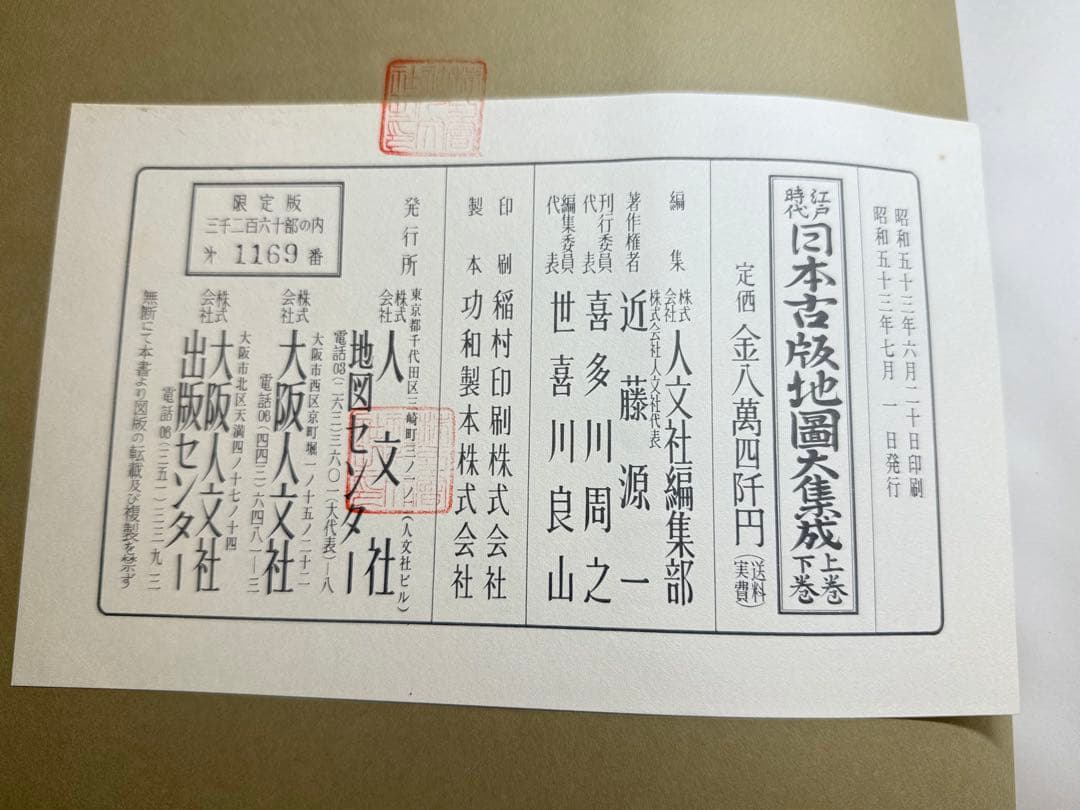 昭和五十三年六月二十日印刷
昭和五十三年七月 一 日発行
江戸時代 日本古版地圖大集成 上巻 下巻
定価 金八萬四阡円 (送料実費)
編集 株式会社 人文社編集部
著作権者 株式会社人文社代表 近藤源一
刊行委員代表 喜多川周之
編集委員代表 世喜川良山
印刷 稲村印刷株式会社
製本 功和製本株式会社
発行所
東京都千代田区三崎町三ノ一ノ一(人文社ビル)
株式会社 人文社
地図センター
電話03(二六三)三六〇一(大代表)―八
大阪市西区京町堀一ノ十五ノ二十二
株式会社 大阪人文社
電話06(四四三)六四八一―三
大阪市北区天満四ノ十七ノ十四
株式会社 大阪人文社
出版センター
電話06(三五一)三三九三
無断にて本書より図版の転載及び複製を禁ず
限定版
三千二百六十部の内
㐧1169番